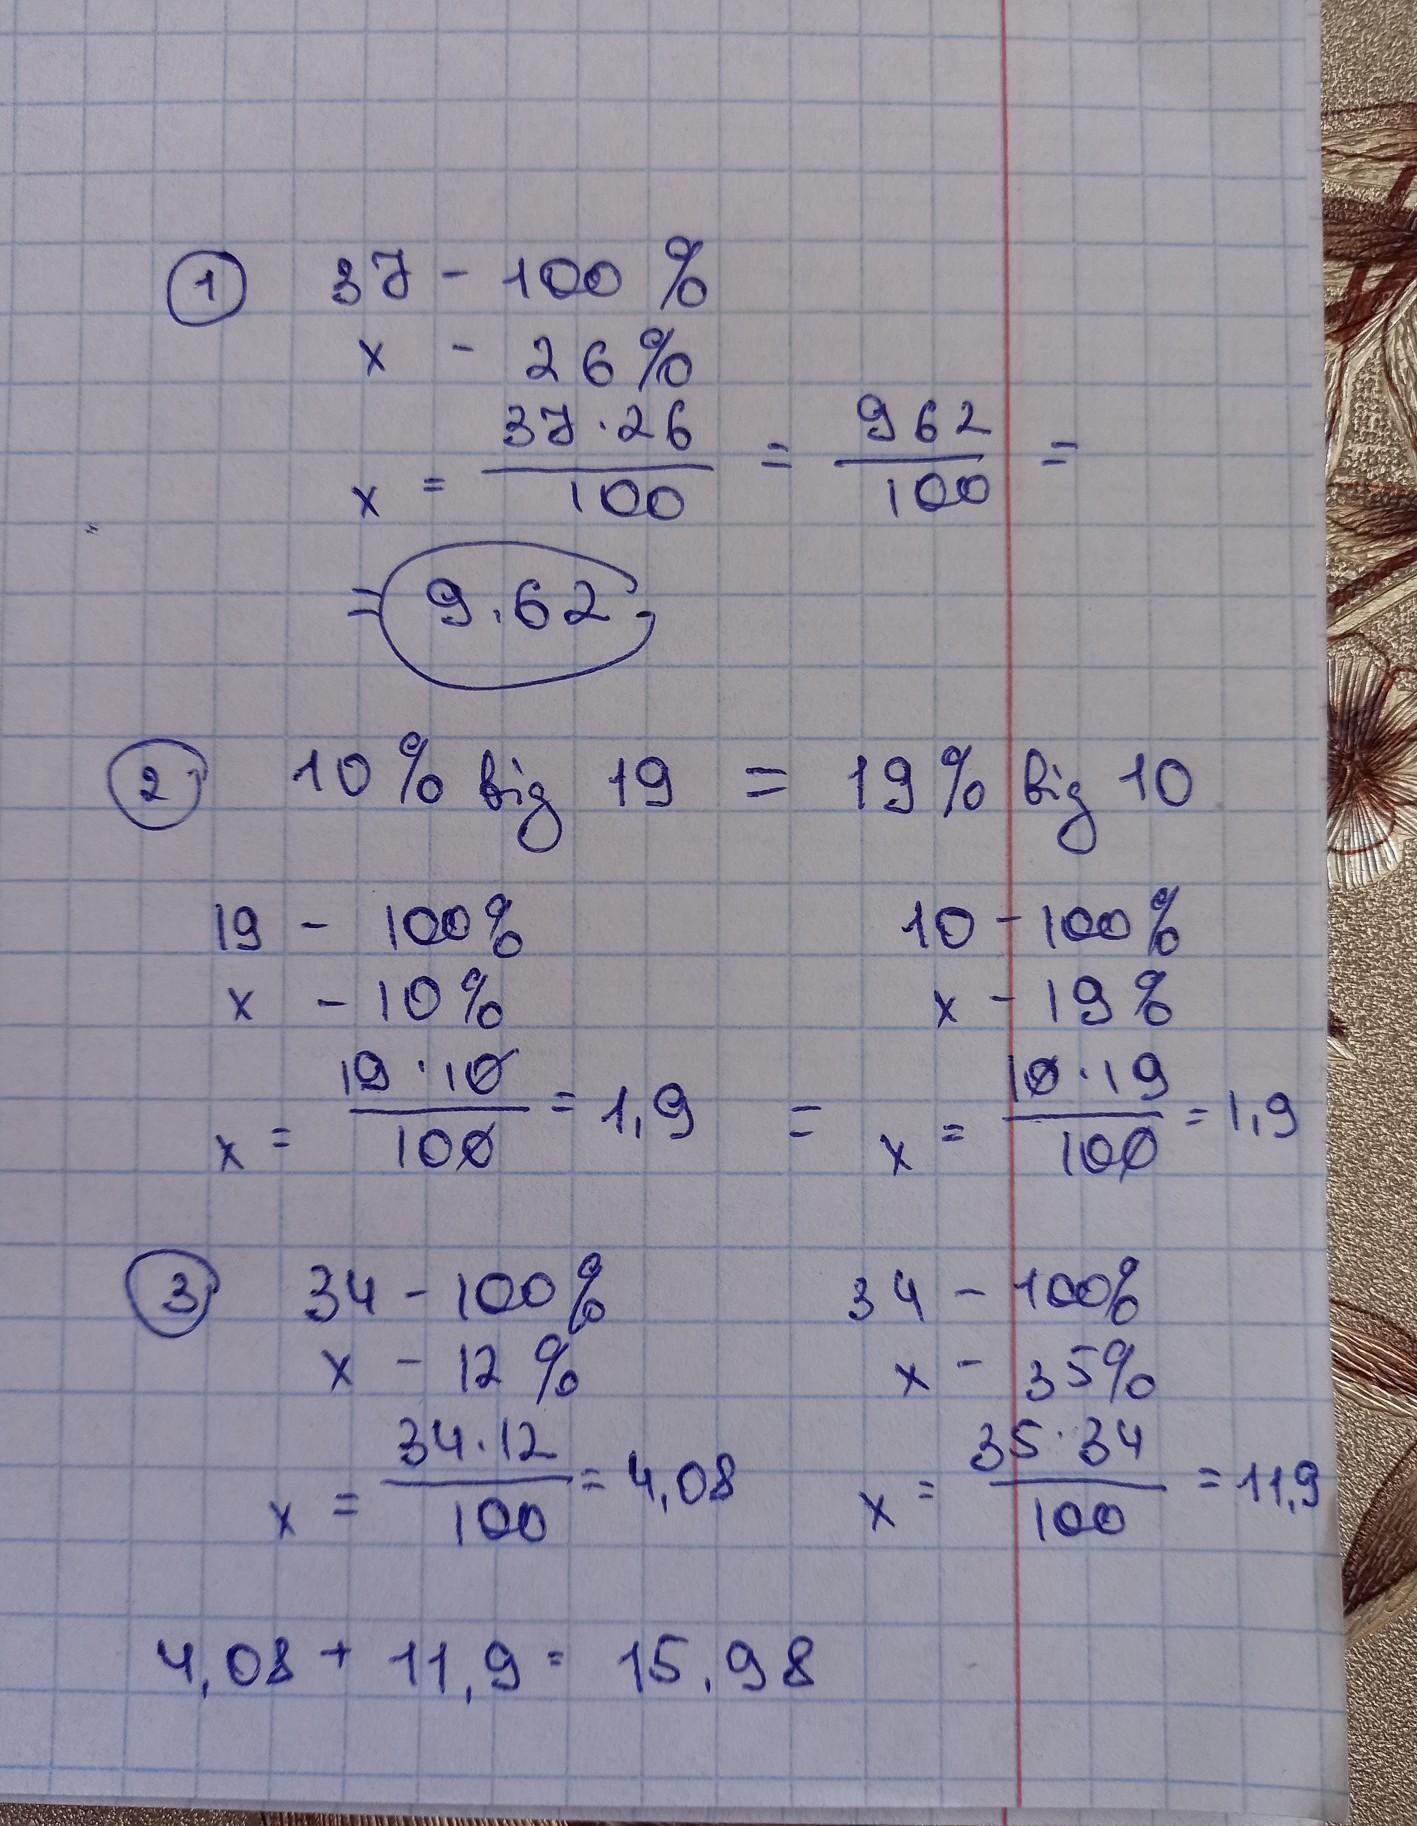 1 37 - 100 %
x - 26%
x = 37·26/100 = 962/100 =
= 9.62
2 10% від 19 = 19% від 10
19 - 100% 10 - 100%
x - 10% x - 19%
x = 19·10/100 = 1,9 = x = 10·19/100 = 1,9
3 34 - 100% 34 - 100%
x - 12% x - 35%
x = 34·12/100 = 4,08 x = 35·34/100 = 11,9
4,08 + 11,9 = 15,98